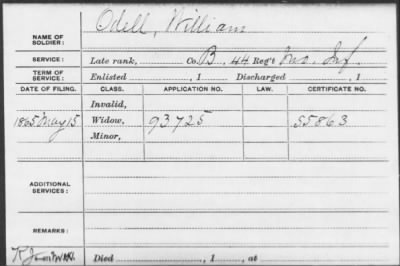 NAME OF SOLDIER: Odell, William
SERVICE: Late rank, Co. B. 44 Reg't Mo. Inf.
TERM OF SERVICE: Enlisted , 1 Discharged , 1
DATE OF FILING. CLASS. APPLICATION NO. LAW. CERTIFICATE NO.
Invalid,
1865 May 15 Widow, 93725 55863
Minor,
ADDITIONAL SERVICES:
REMARKS:
Died , 1 , at